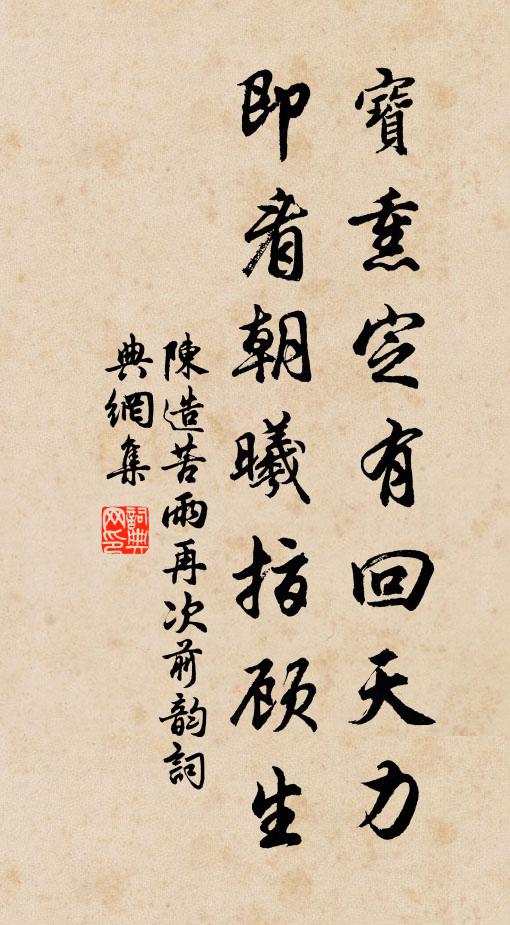 寶熏定有回天力
即看朝曦指顾生
陳造苦雨再次前韵詞
典網集
詞典网印